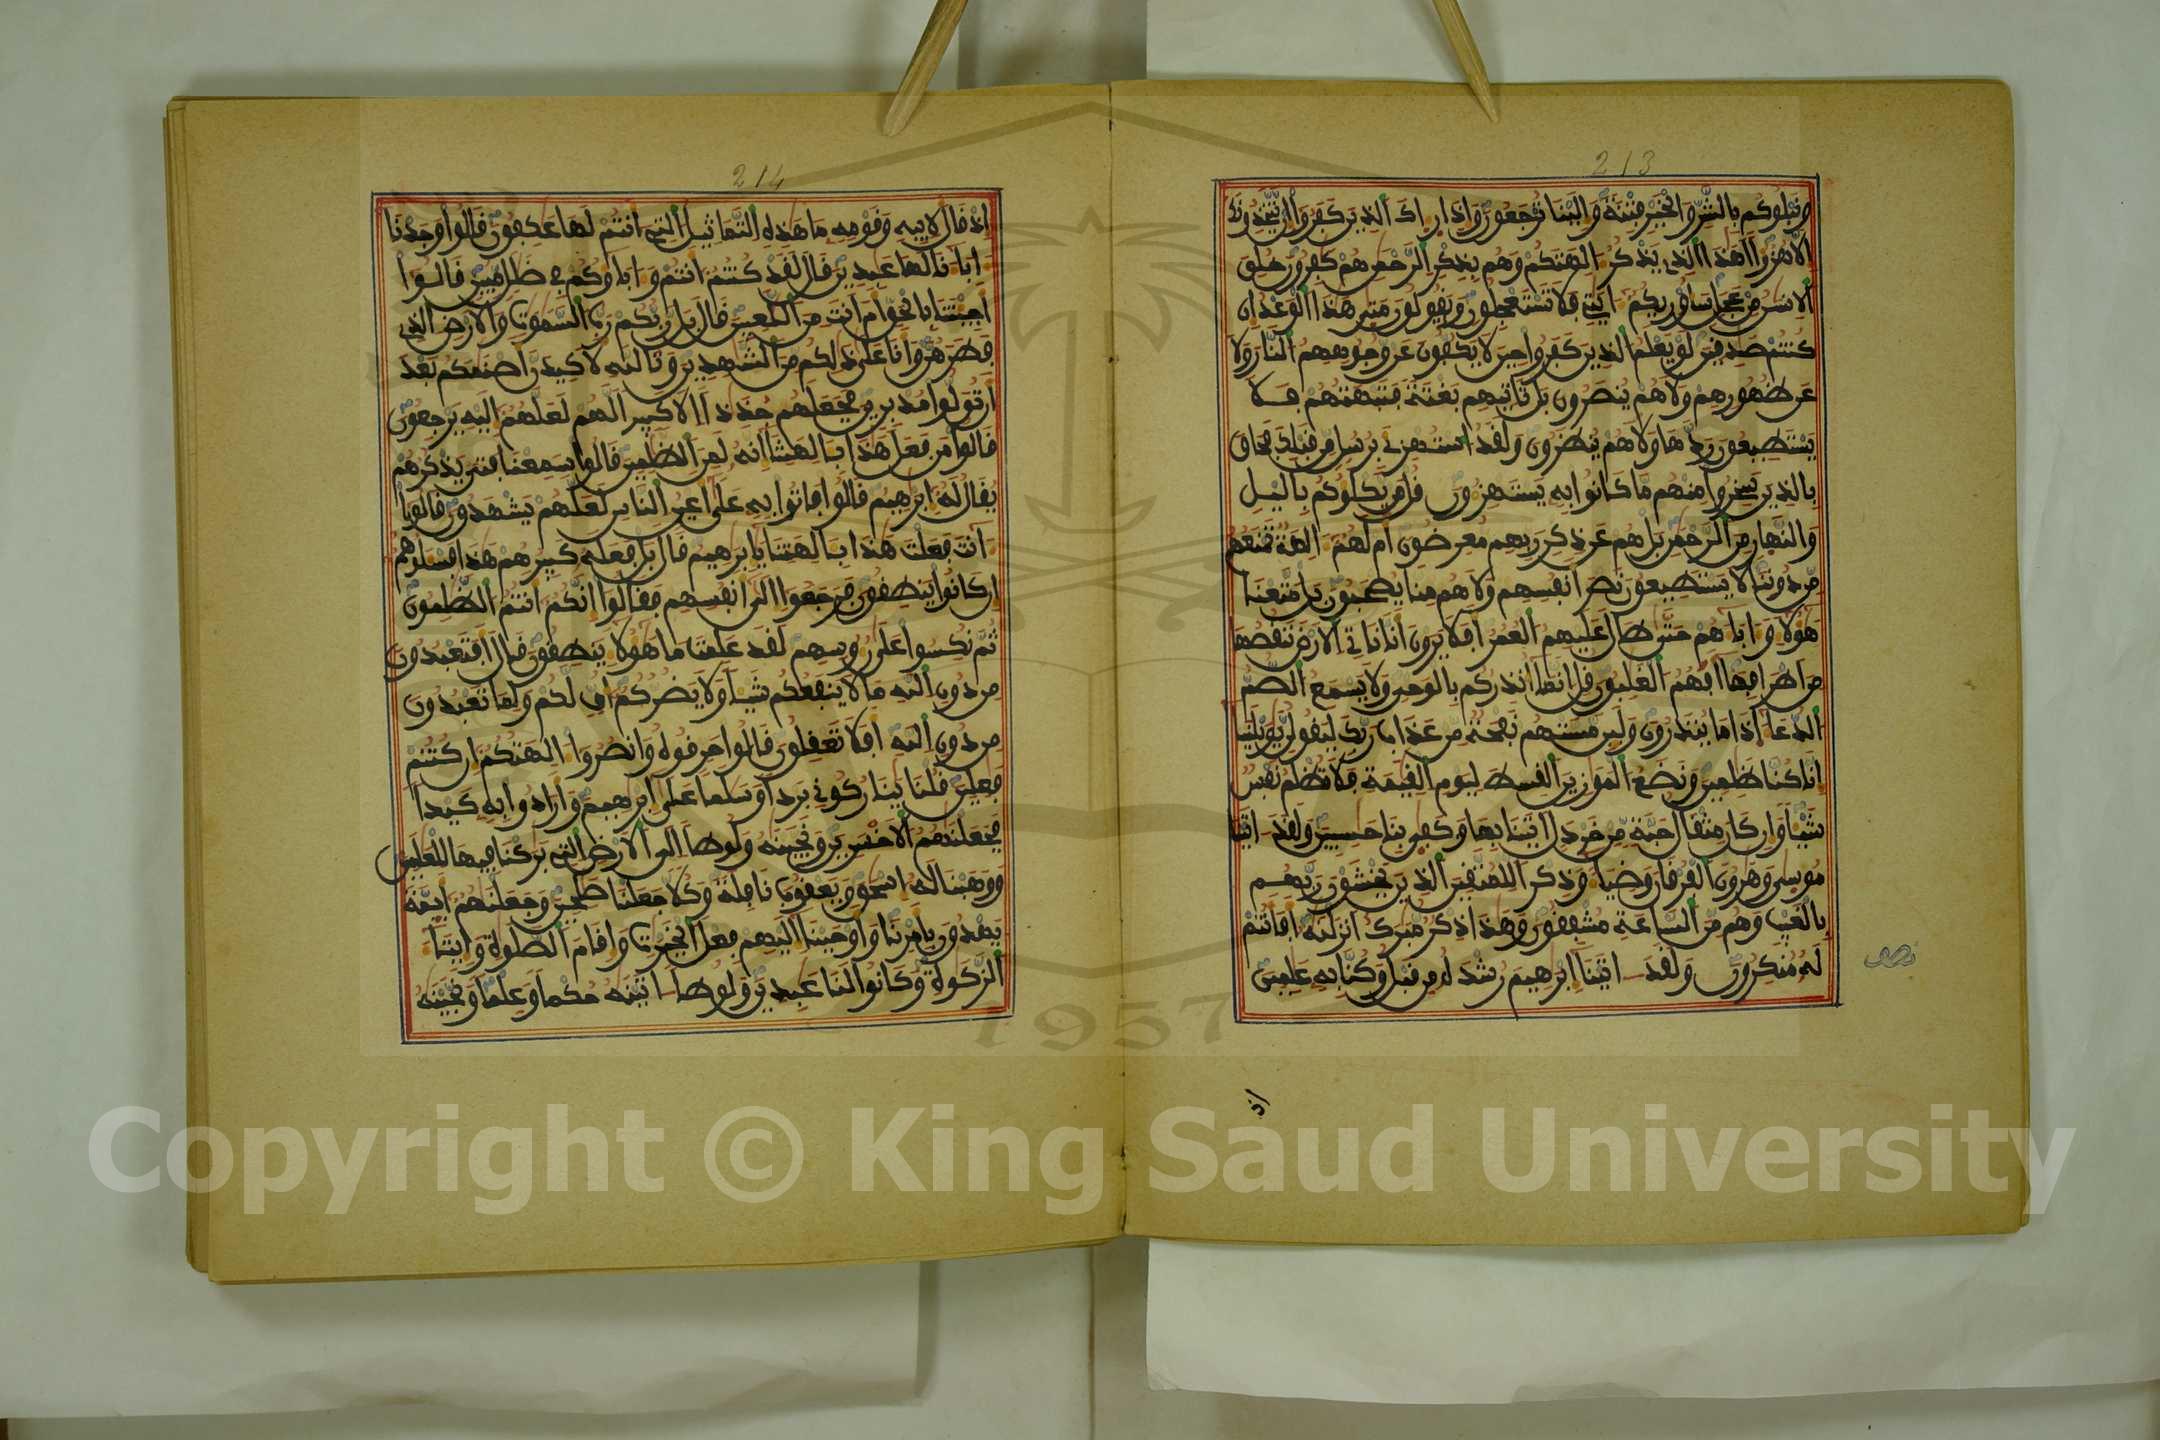 213
ونبلوكم بالشر والخير فتنة والينا ترجعون واذا راك الذين كفروا ان يتخذونك
الا هزؤا اهذا الذي يذكر الهتكم وهم بذكر الرحمن هم كفرون خلق
الانسن من عجل سأوريكم ءايتي فلا تستعجلون ويقولون متى هذا الوعد ان
كنتم صدقين لو يعلم الذين كفروا حين لا يكفون عن وجوههم النار ولا
عن ظهورهم ولا هم ينصرون بل تاتيهم بغتة فتبهتهم فلا
يستطيعون ردها ولا هم ينظرون ولقد استهزئ برسل من قبلك فحاق
بالذين سخروا منهم ما كانوا به يستهزءون قل من يكلؤكم باليل
والنهار من الرحمن بل هم عن ذكر ربهم معرضون ام لهم ءالهة تمنعهم
من دوننا لا يستطيعون نصر انفسهم ولا هم منا يصحبون بل متعنا
هؤلاء وءاباءهم حتى طال عليهم العمر افلا يرون انا ناتي الارض ننقصها
من اطرافها افهم الغلبون قل انما انذركم بالوحي ولا يسمع الصم
الدعاء اذا ما ينذرون ولين مستهم نفحة من عذاب ربك ليقولن يويلنا
انا كنا ظلمين ونضع الموزين القسط ليوم القيمة فلا تظلم نفس
شيئا وان كان مثقال حبة من خردل اتينا بها وكفى بنا حسبين ولقد ءاتينا
موسى وهرون الفرقان وضياء وذكرا للمتقين الذين يخشون ربهم
بالغيب وهم من الساعة مشفقون وهذا ذكر مبرك انزلنه افانتم
له منكرون ولقد ءاتينا ابرهيم رشده من قبل وكنا به علمين
نصف
اذ
214
اذ قال لابيه وقومه ما هذه التماثيل التي انتم لها عكفون قالوا وجدنا
ءاباءنا لها عبدين قال لقد كنتم انتم وءاباؤكم في ضلل مبين قالوا
اجيتنا بالحق ام انت من اللعبين قال بل ربكم رب السموت والارض الذي
فطرهن وانا على ذلكم من الشهدين وتالله لاكيدن اصنمكم بعد
ان تولوا مدبرين فجعلهم جذذا الا كبيرا لهم لعلهم اليه يرجعون
قالوا من فعل هذا بالهتنا انه لمن الظلمين قالوا سمعنا فتى يذكرهم
يقال له ابرهيم قالوا فاتوا به على اعين الناس لعلهم يشهدون قالوا
ءانت فعلت هذا بالهتنا يابرهيم قال بل فعله كبيرهم هذا فسلوهم
ان كانوا ينطقون فرجعوا الى انفسهم فقالوا انكم انتم الظلمون
ثم نكسوا على رءوسهم لقد علمت ما هؤلاء ينطقون قال افتعبدون
من دون الله ما لا ينفعكم شيئا ولا يضركم اف لكم ولما تعبدون
من دون الله افلا تعقلون قالوا حرقوه وانصروا ءالهتكم ان كنتم
فعلين قلنا ينار كوني بردا وسلما على ابرهيم وارادوا به كيدا
فجعلنهم الاخسرين ونجينه ولوطا الى الارض التي بركنا فيها للعلمين
ووهبنا له اسحق ويعقوب نافلة وكلا جعلنا صلحين وجعلنهم ايمة
يهدون بامرنا واوحينا اليهم فعل الخيرت واقام الصلوة وايتاء
الزكوة وكانوا لنا عبدين ولوطا ءاتينه حكما وعلما ونجينه
1957
Copyright © King Saud University